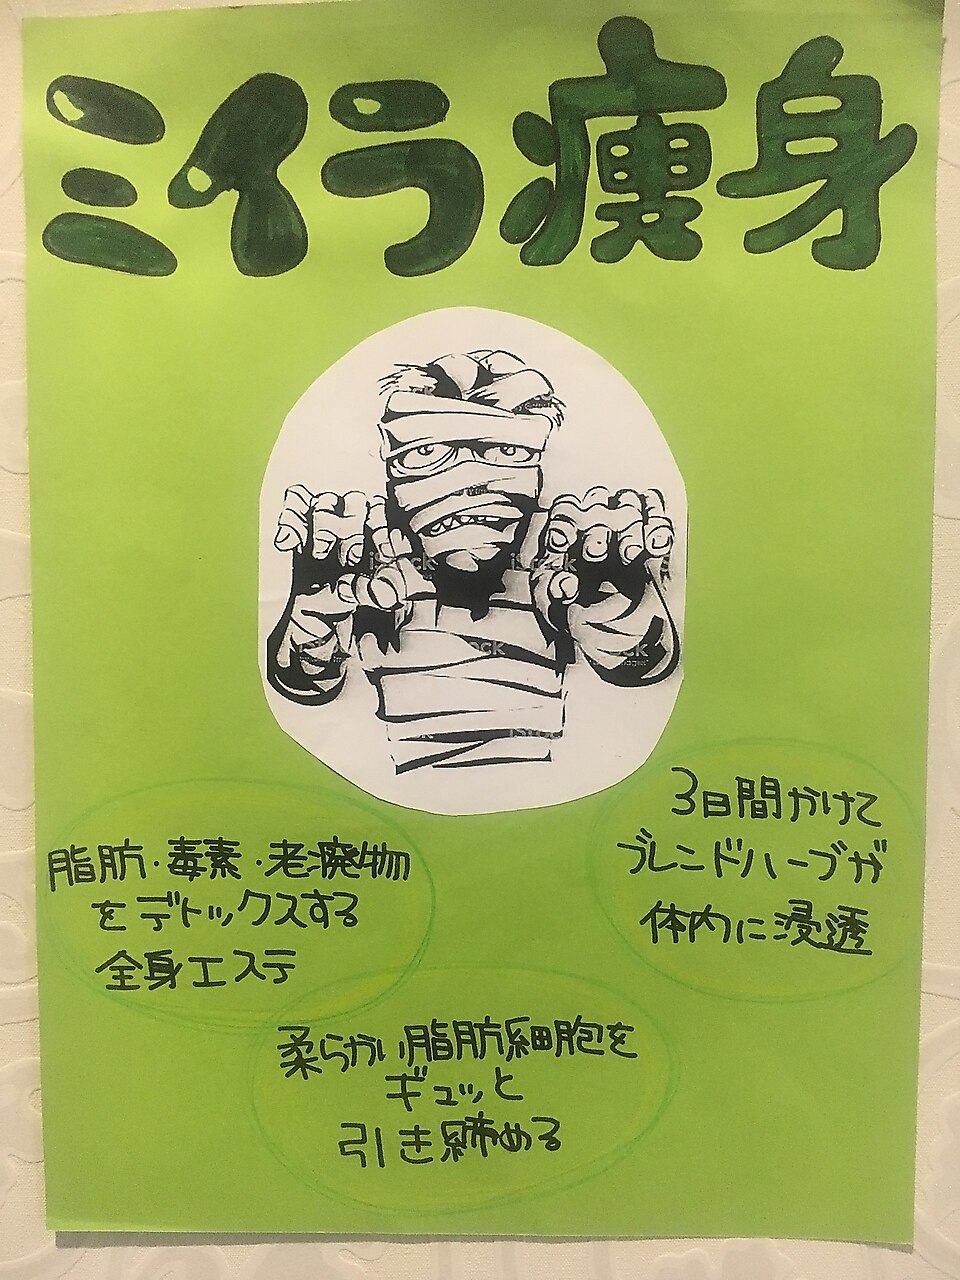 ミイラ痩身
脂肪・毒素・老廃物
をデトックスする
全身エステ
3日間かけて
ブレンドハーブが
体内に浸透
柔らかい脂肪細胞を
ギュッと
引き締める
iStock